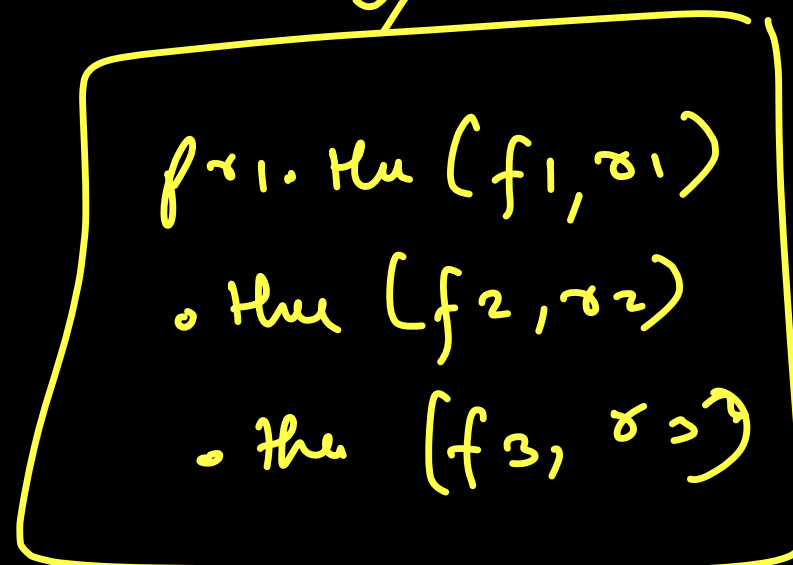 pr1.then (f1, r1)
.then (f2, r2)
.then (f3, r3)